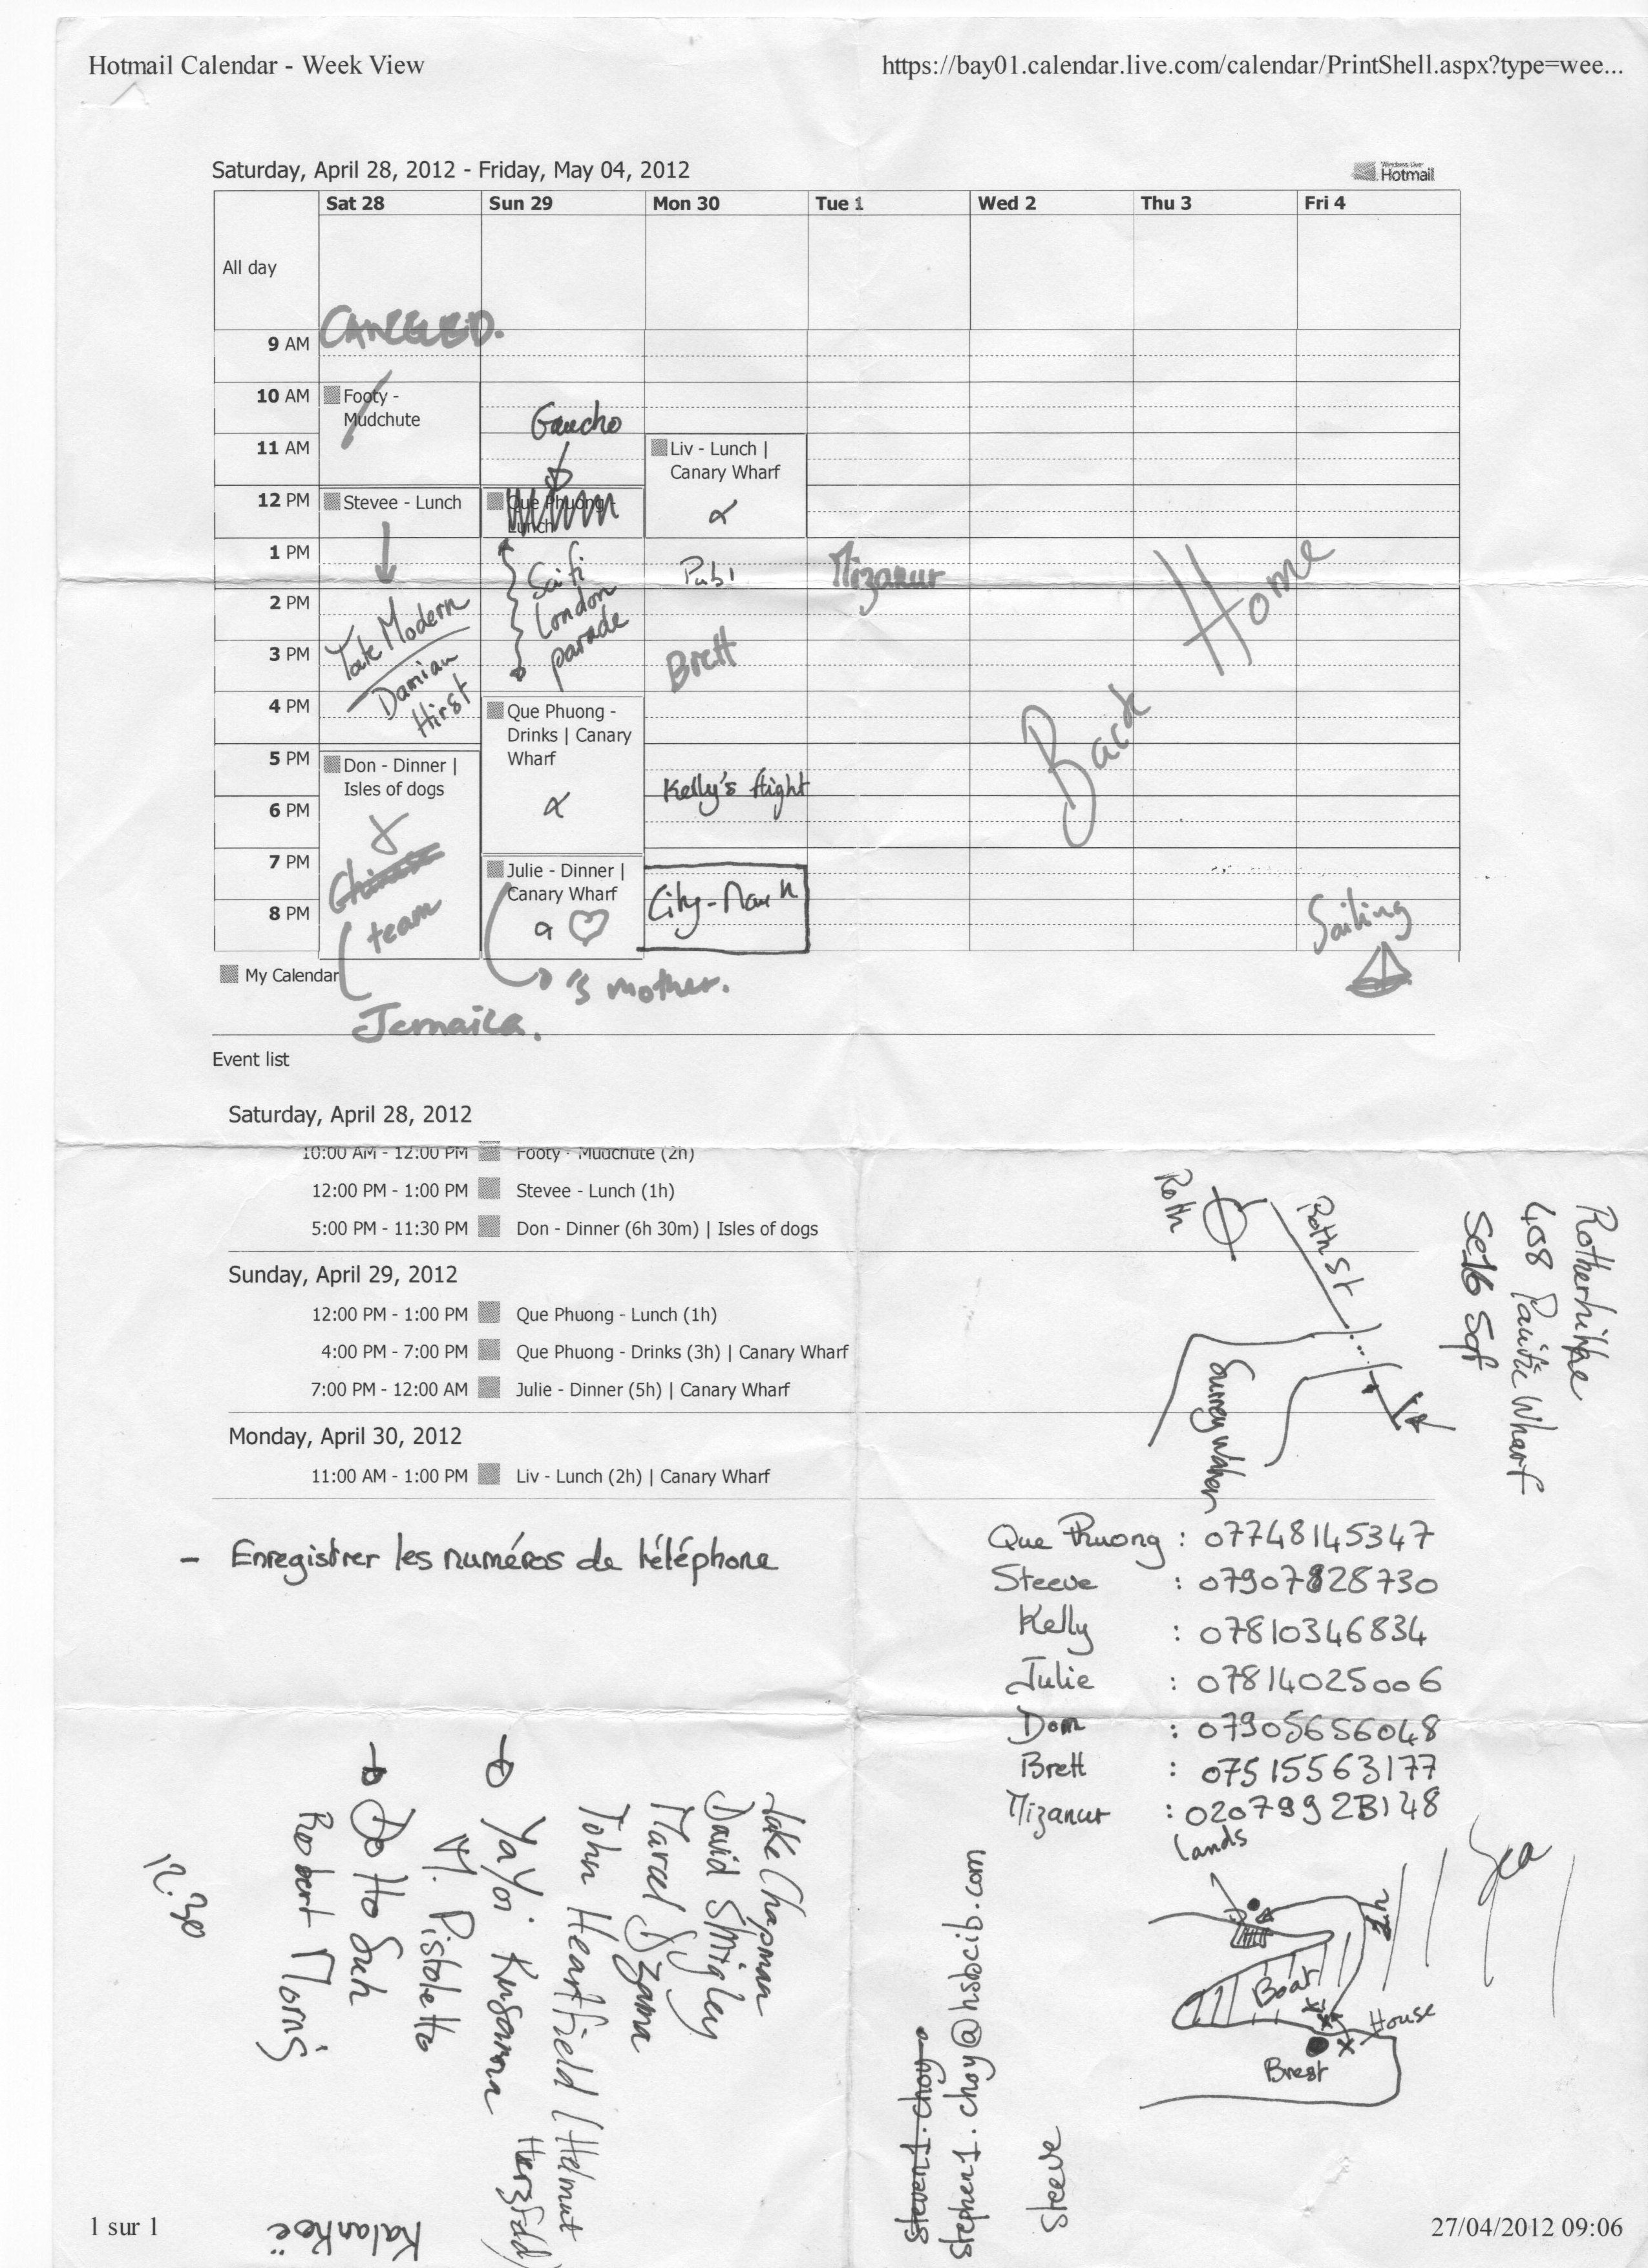 Hotmail Calendar - Week View
https://bay01.calendar.live.com/calendar/PrintShell.aspx?type=wee...
Saturday, April 28, 2012 - Friday, May 04, 2012
Windows Live
Hotmail
Sat 28
Sun 29
Mon 30
Tue 1
Wed 2
Thu 3
Fri 4
All day
CANCELED.
9 AM
10 AM
Footy -
Mudchute
Gaucho
11 AM
Liv - Lunch |
Canary Wharf
12 PM
Stevee - Lunch
Que Phuong -
Lunch
1 PM
Scifi
London
parade
Pub!
Mizanur
Back Home
2 PM
Tate Modern
Damian
Hirst
3 PM
Brett
4 PM
Que Phuong -
Drinks | Canary
Wharf
5 PM
Don - Dinner |
Isles of dogs
Kelly's flight
6 PM
7 PM
Julie - Dinner |
Canary Wharf
8 PM
team
Sailing
My Calendar
's mother.
Jemaica.
Event list
Saturday, April 28, 2012
10:00 AM - 12:00 PM Footy - Mudchute (2h)
12:00 PM - 1:00 PM Stevee - Lunch (1h)
5:00 PM - 11:30 PM Don - Dinner (6h 30m) | Isles of dogs
Sunday, April 29, 2012
12:00 PM - 1:00 PM Que Phuong - Lunch (1h)
4:00 PM - 7:00 PM Que Phuong - Drinks (3h) | Canary Wharf
7:00 PM - 12:00 AM Julie - Dinner (5h) | Canary Wharf
Monday, April 30, 2012
11:00 AM - 1:00 PM Liv - Lunch (2h) | Canary Wharf
Roth
Roth St
Surrey Water
408 Pacific Wharf
Se16
- Enregistrer les numéros de téléphone
Que Phuong : 07748145347
Steeve : 07907828730
Kelly : 07810346834
Julie : 07814025006
Dom : 07905656048
Brett : 07515563177
Mizanur
Lands
Sea
Boat
House
Brest
Jake Chapman
David Shrigley
Marcel Dzama
John Heartfield (Helmut
Herzfeld)
Yayoi Kusama
M. Pistoletto
Do Ho Suh
Robert Morris
12.30
steven1.choy
stephen1.choy@hsbcib.com
Steeve
1 sur 1
27/04/2012 09:06